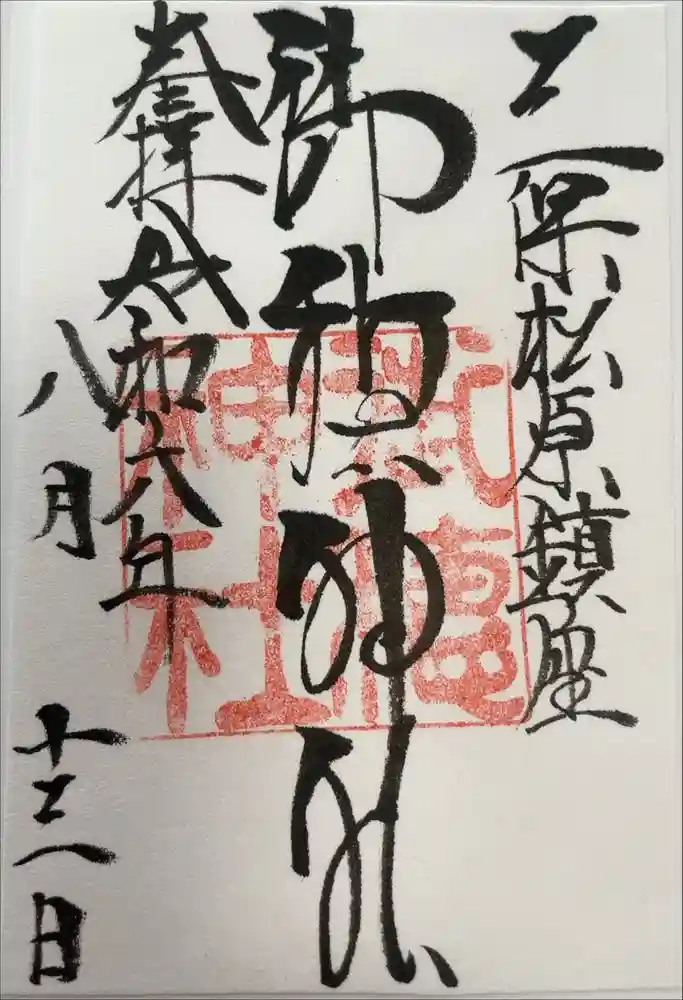 三保松原鎮座
御穂神社
奉拝 令和六年
八月 十三日
御穂
神社